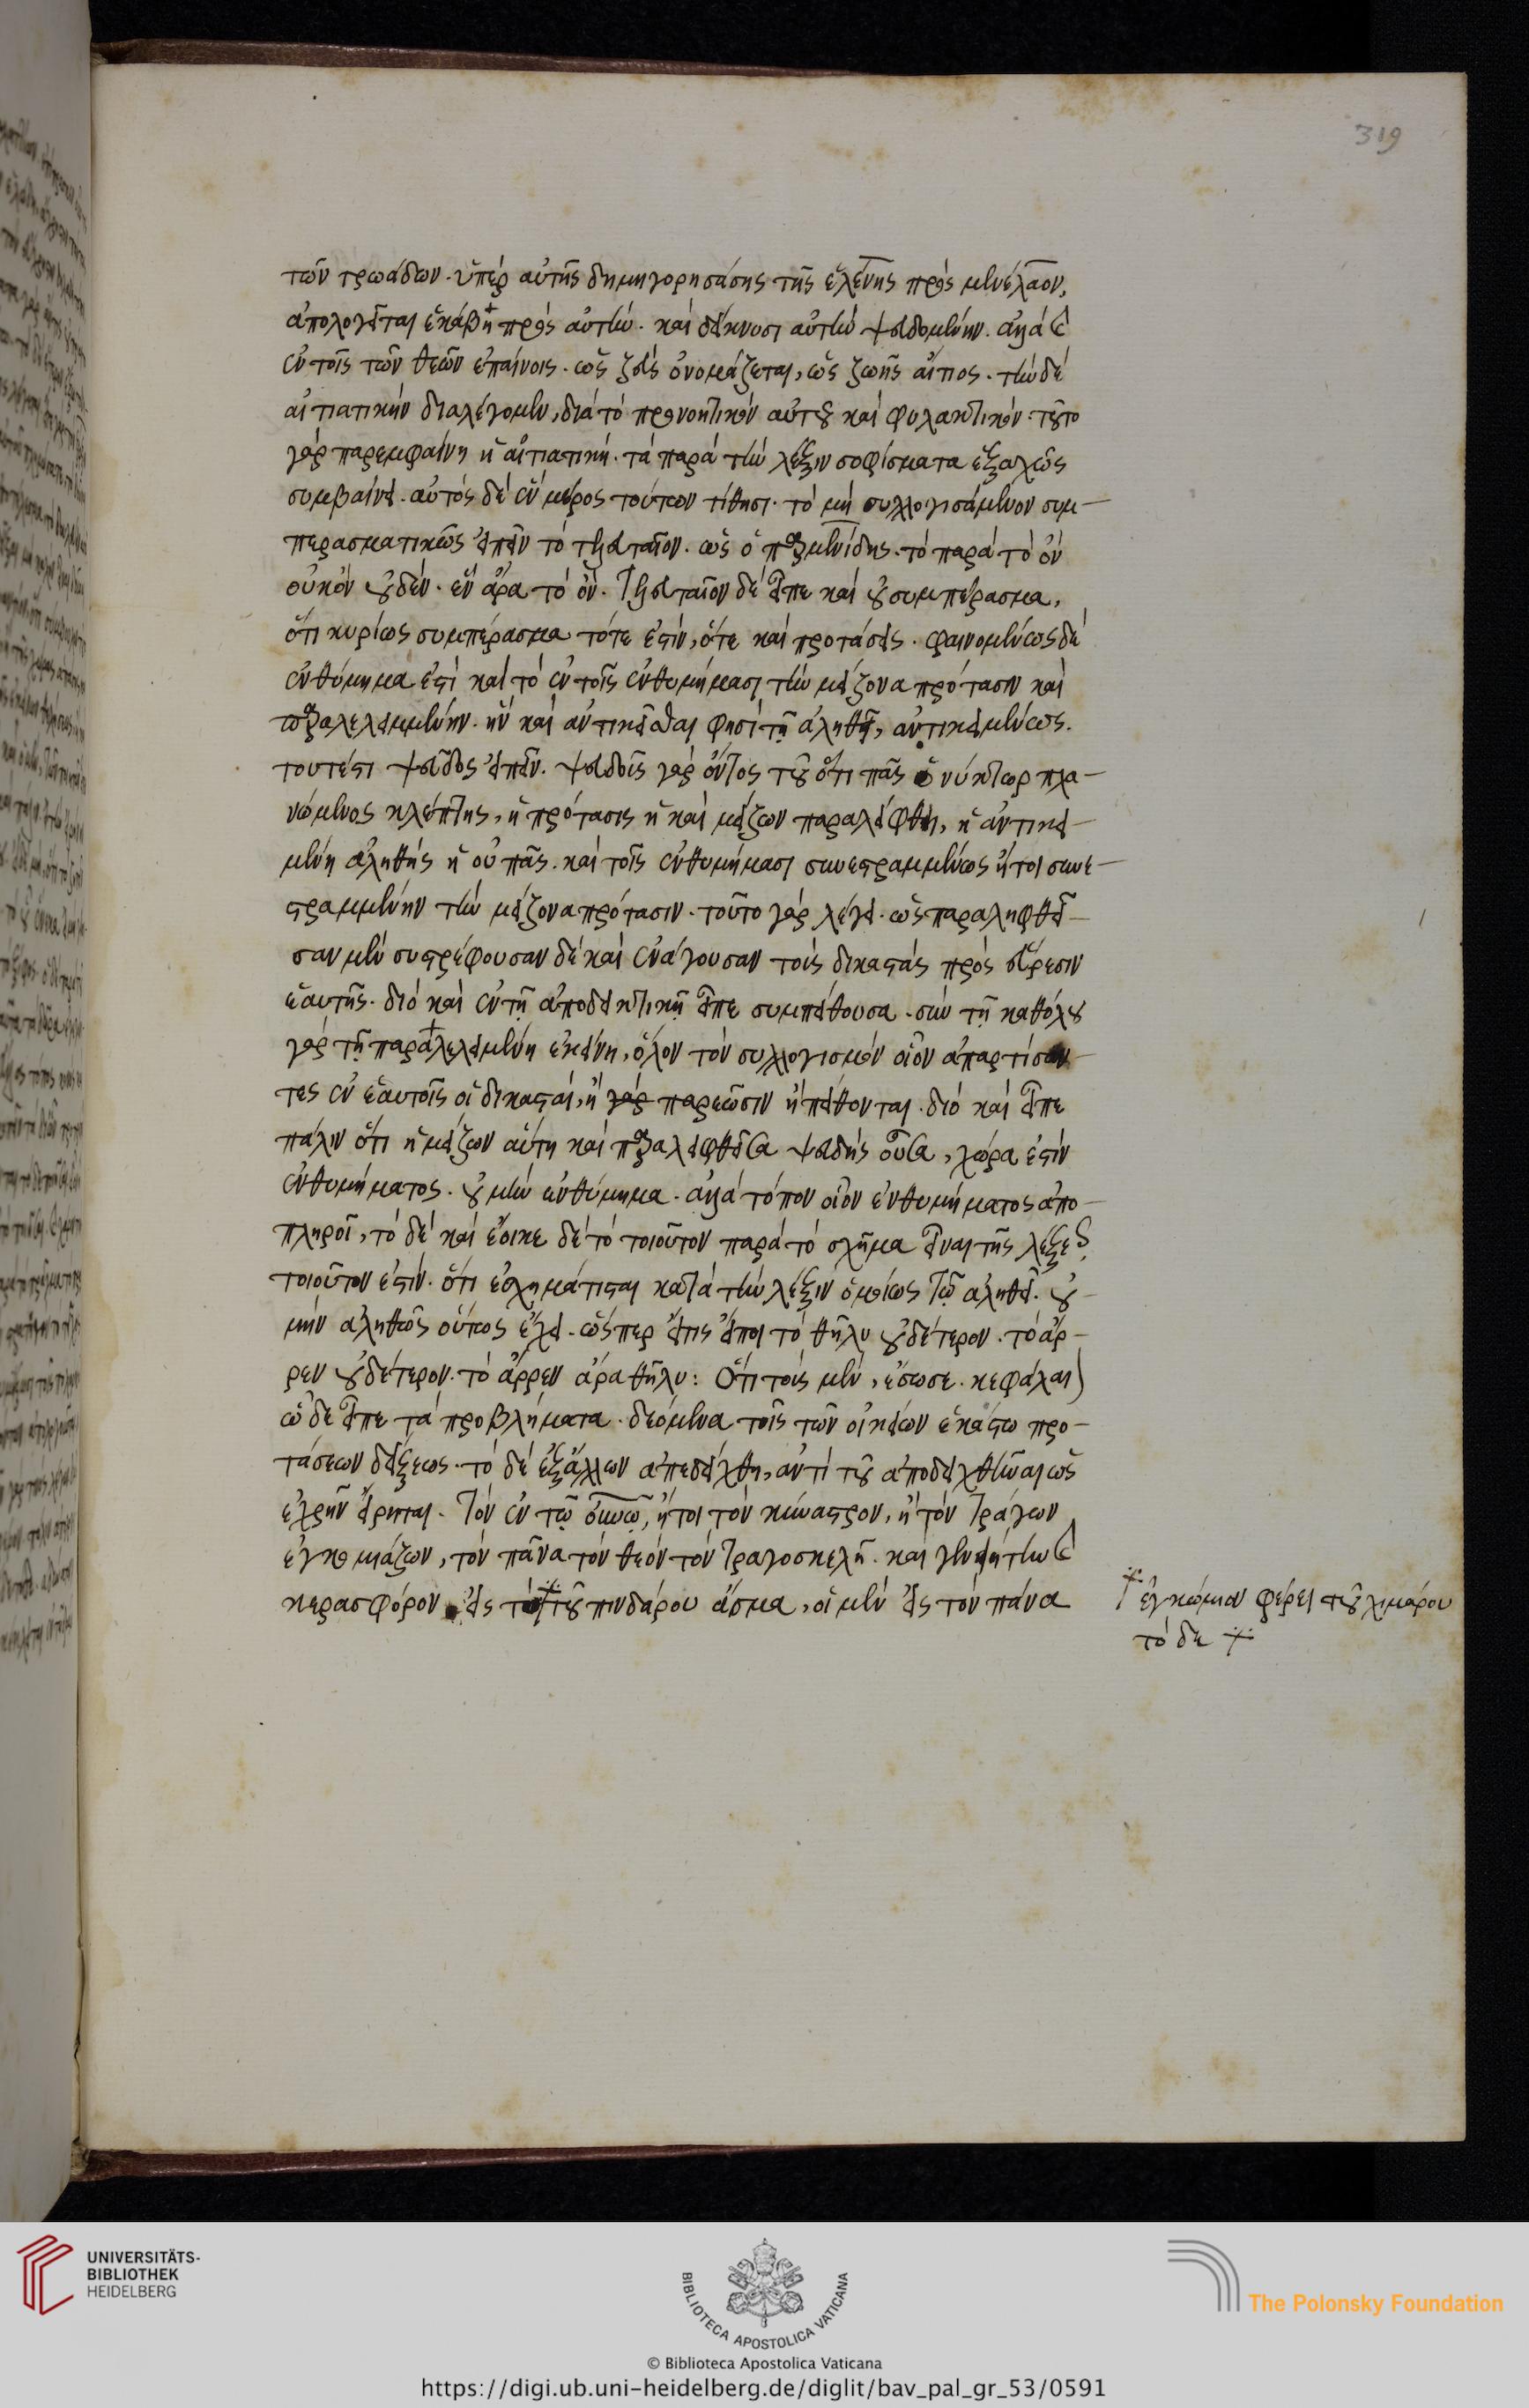 319
τῶν τρωάδων. ὑπὲρ αὐτῆς δημηγορησάσης τῆς ἑλένης πρὸς μενέλαον,
ἀπολογεῖται ἑκάβη πρὸς αὐτήν. καὶ δείκνυσι αὐτὴν ψευδομένην. ἀλλὰ καὶ
ἐν τοῖς τῶν θεῶν ἐπαίνοις. ὡς ζεὺς ὀνομάζεται, ὡς ζωῆς αἴτιος. τὴν δὲ
αἰτιατικὴν διαλέγομεν, διὰ τὸ προνοητικὸν αὐτοῦ καὶ φυλακτικόν. τοῦτο
γὰρ παρεμφαίνη ἡ αἰτιατική. τὰ παρὰ τὴν λέξιν σοφίσματα ἑξαχῶς
συμβαίνει. αὐτὸς δὲ ἓν μέρος τούτων τίθησι. τὸ μὴ συλλογισάμενον συμ-
περασματικῶς εἰπεῖν τὸ τελευταῖον. ὡς ὁ παρμενίδης. τὸ παρὰ τὸ ὂν
οὐκ ὂν οὐδέν. ἓν ἄρα τὸ ὄν. τελευταῖον δὲ εἶπε καὶ οὐ συμπέρασμα,
ὅτι κυρίως συμπέρασμα τότε ἐστίν, ὅτε καὶ προτάσεις. φαινομένως δὲ
ἐνθύμημα ἐστὶ καὶ τὸ ἐν τοῖς ἐνθυμήμασι τὴν μείζονα πρότασιν καὶ
παραλελειμμένην. ἣν καὶ ἀντικεῖσθαι φησὶ τῇ ἀληθεῖ, ἀντικειμένως.
τουτέστι ψεῦδος εἰπεῖν. ψευδοῦς γὰρ ὄντος τοῦ ὅτι πᾶς ὁ νύκτωρ πλα-
νώμενος κλέπτης, ἡ πρότασις ἡ καὶ μείζων παραλείφθη, ἡ ἀντικει-
μένη ἀληθής ἡ οὐ πᾶς. καὶ τοῖς ἐνθυμήμασι συνεστραμμένως ἤτοι συνε-
στραμμένην τὴν μείζονα πρότασιν. τοῦτο γὰρ λέγει. ὡς παραληφθεῖ-
σαν μὲν συστρέφουσαν δὲ καὶ ἐνάγουσαν τοὺς δικαστὰς πρὸς εὕρεσιν
ἑαυτῆς. διὸ καὶ ἐν τῇ ἀποδεικτικῇ εἶπε συμπείθουσα. σὺν τῇ καθόλου
γὰρ τῇ παραλελειμένη ἐκείνη, ὅλον τὸν συλλογισμὸν οἷον ἀπαρτίσαν-
τες ἐν ἑαυτοῖς οἱ δικασταί, ἢ γὰρ παρεῶσιν ἢ πείθονται. διὸ καὶ εἶπε
πάλιν ὅτι ἡ μείζων αὕτη καὶ παραλειφθεῖσα ψευδὴς οὖσα, χώρα ἐστὶν
ἐνθυμήματος. οὐ μὴν ἐνθύμημα. ἀλλὰ τόπον οἷον ἐνθυμήματος ἀπο-
πληροῖ, τὸ δὲ καὶ ἔοικε δὲ τὸ τοιοῦτον παρὰ τὸ σχῆμα εἶναι τῆς λέξεως
τοιοῦτον ἐστίν. ὅτι ἐσχημάτισται κατὰ τὴν λέξιν ὁμοίως τῷ ἀληθεῖ. οὐ
μὴν ἀληθῶς οὕτως ἔχει. ὥσπερ εἴτις εἴποι τὸ θῆλυ οὐδέτερον. τὸ ἄρ-
ρεν οὐδέτερον. τὸ ἄρρεν ἄρα θῆλυ: Ὅτι τοὺς μὲν, ἔσωσε. κεφάλαι)
ὧδε εἶπε τὰ προβλήματα. δεόμενα τοῖς τῶν οἰκείων ἑκάστω προ-
τάσεων δείξεως. τὸ δὲ ἐξ ἄλλων ἀπεδείχθη, ἀντὶ τοῦ ἀποδειχθῆναι ὡς
ἐχρῆν εἴρηται. τὸν ἐν τῷ οὐνῷ, ἤτοι τὸν κύναστρον, ἢ τὸν τράγων
ἐγκομιάζων, τὸν πᾶνα τὸν θεὸν τὸν τραγοσκελῆ. καὶ γενηήτων καὶ
κερασφόρον εἰς τὸ τοῦ πινδάρου ἄσμα, οἱ μὲν εἰς τὸν πάνα
ἐγκώμιον φέρει τοῦ χιμάρου
τὸ δε
UNIVERSITÄTS-
BIBLIOTHEK
HEIDELBERG
BIBLIOTECA APOSTOLICA VATICANA
The Polonsky Foundation
© Biblioteca Apostolica Vaticana
https://digi.ub.uni-heidelberg.de/diglit/bav_pal_gr_53/0591